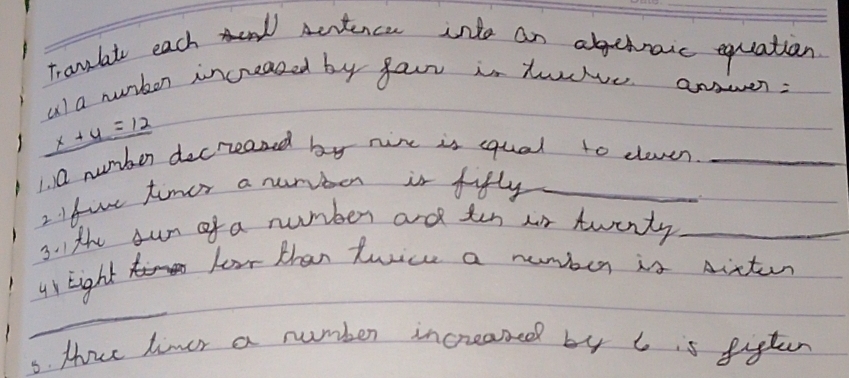 Translate each send sentence into an algebraic equation.
(x) a number increased by four is twelve. answer =
x + 4 = 12
1.) a number decreased by nine is equal to eleven. ________
2.) five times a number is fifty ________
3.) the sum of a number and ten is twenty ________
4) Eight times less than twice a number is sixten
________
5. three times a number increased by 6 is figteen